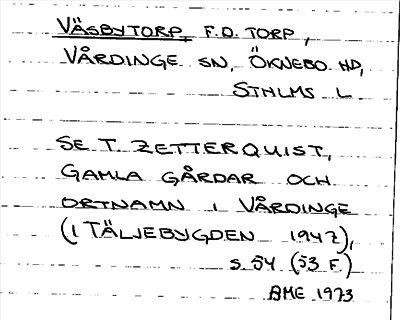 VÄSBYTORP, F.D. TORP,
VÅRDINGE SN, ÖKNEBO HD,
STHLMS L
SE T. ZETTERQUIST,
GAMLA GÅRDAR OCH
ORTNAMN I VÅRDINGE
(I TÄLJEBYGDEN 1947),
S. 54 (53 F.)
BME 1973